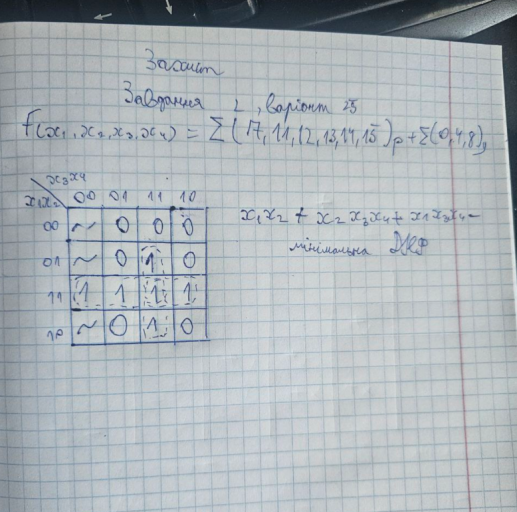 Захист
Завдання 2, варіант 25
f(x₁, x₂, x₃, x₄) = Σ(7, 11, 12, 13, 14, 15)ₚ + Σ(0, 4, 8)
x₃x₄
x₁x₂ 00 01 11 10
00 ~ 0 0 0
01 ~ 0 1 0
11 1 1 1 1
10 ~ 0 1 0
x₁x₂ + x₂x₃x₄ + x₁x₃x₄ –
мінімальна ДНФ